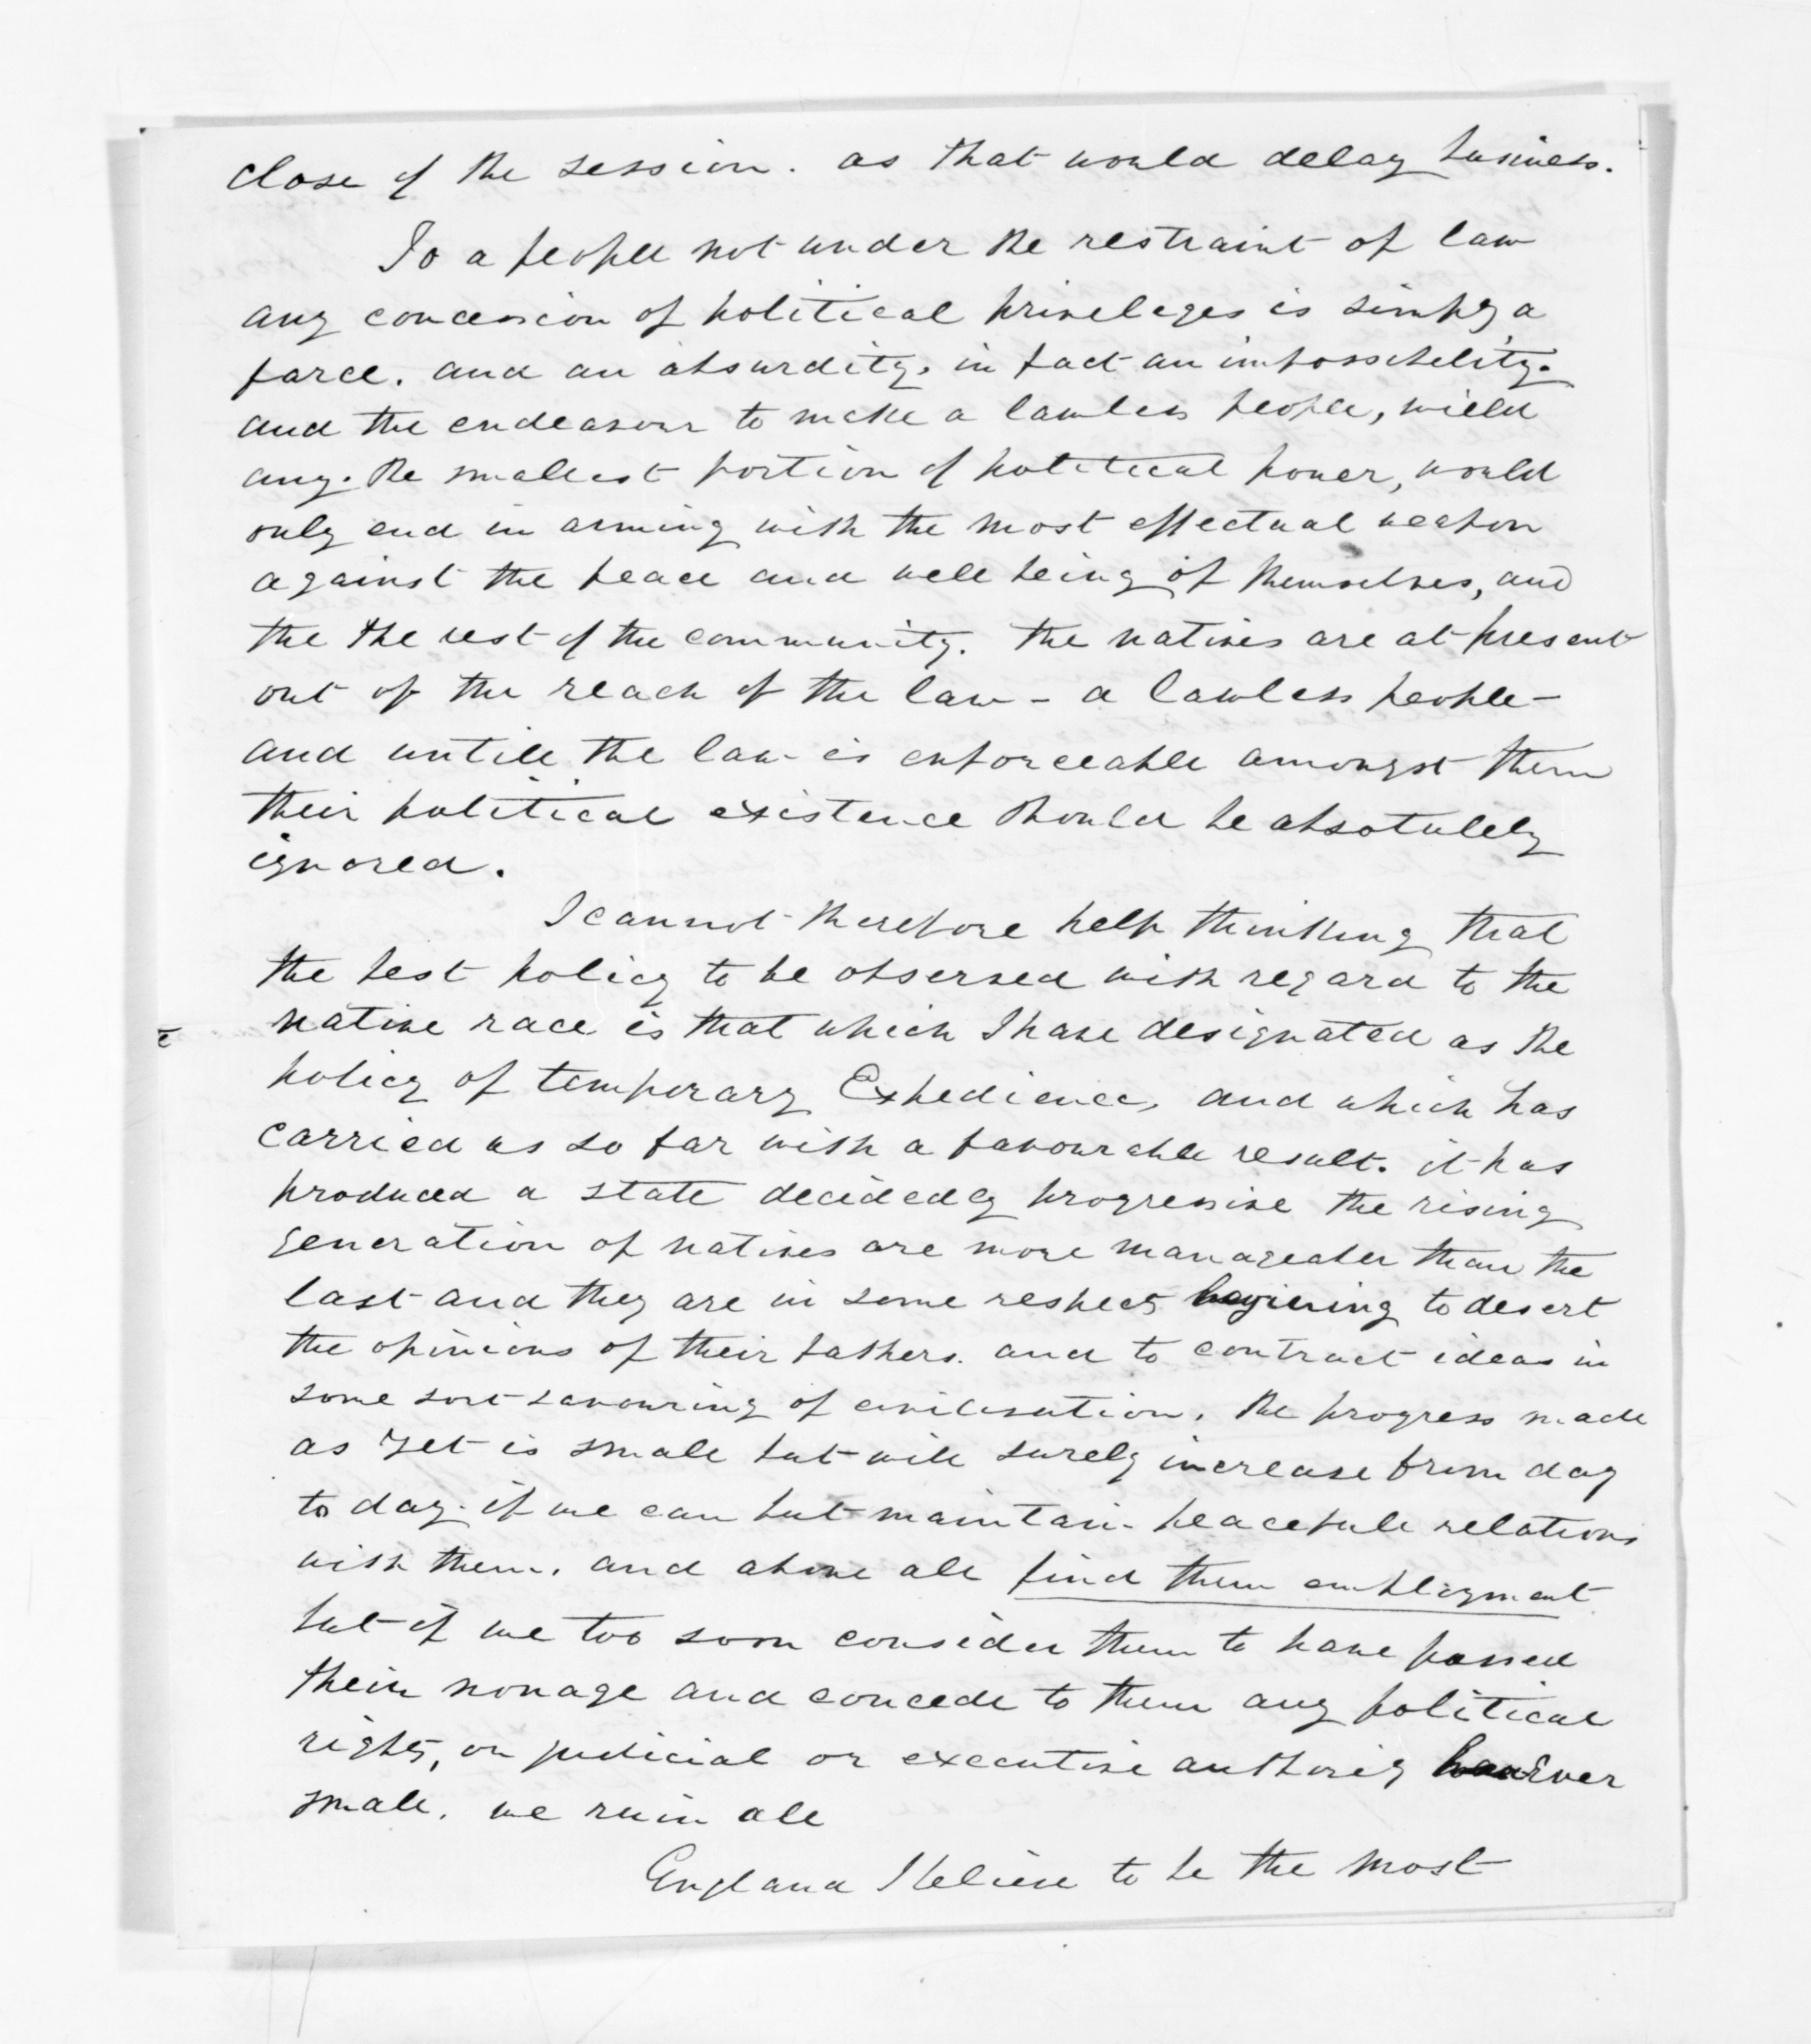 close of the session. as that would delay business.
To a people not under the restraint of law
any concession of political priveleges is simply a
farce. and an absurdity. in fact an impossibelity.
and the endeavour to make a lawless people, wield
any. the smallest portion of political power, would
only end in arming with the most effectual weapon
against the peace and well being of themselves, and
the the rest of the community. the natives are at present
out of the reach of the law - a lawless people -
and untill the law is enforceable amongst them
their political existence should be absolutely
ignored.
I cannot therefore help thinking that
the best policy to be observed with regard to the
native race is that which I have designated as the
policy of temporary Expedience, and which has
carried us so far with a favourable result. it has
produced a state decidedly progressive the rising
generation of natives are more manageable than the
last and they are in some respects begining to desert
the opinions of their fathers. and to contract ideas in
some sort savouring of civilisation. the progress made
as yet is small but will surely increase from day
to day. if we can but maintain peacefull relations
with them. and above all find them employment
but if we too soon consider them to have passed
their nonage and concede to them any political
rights, or judicial or executive authority however
small. we ruin all
England I believe to be the most